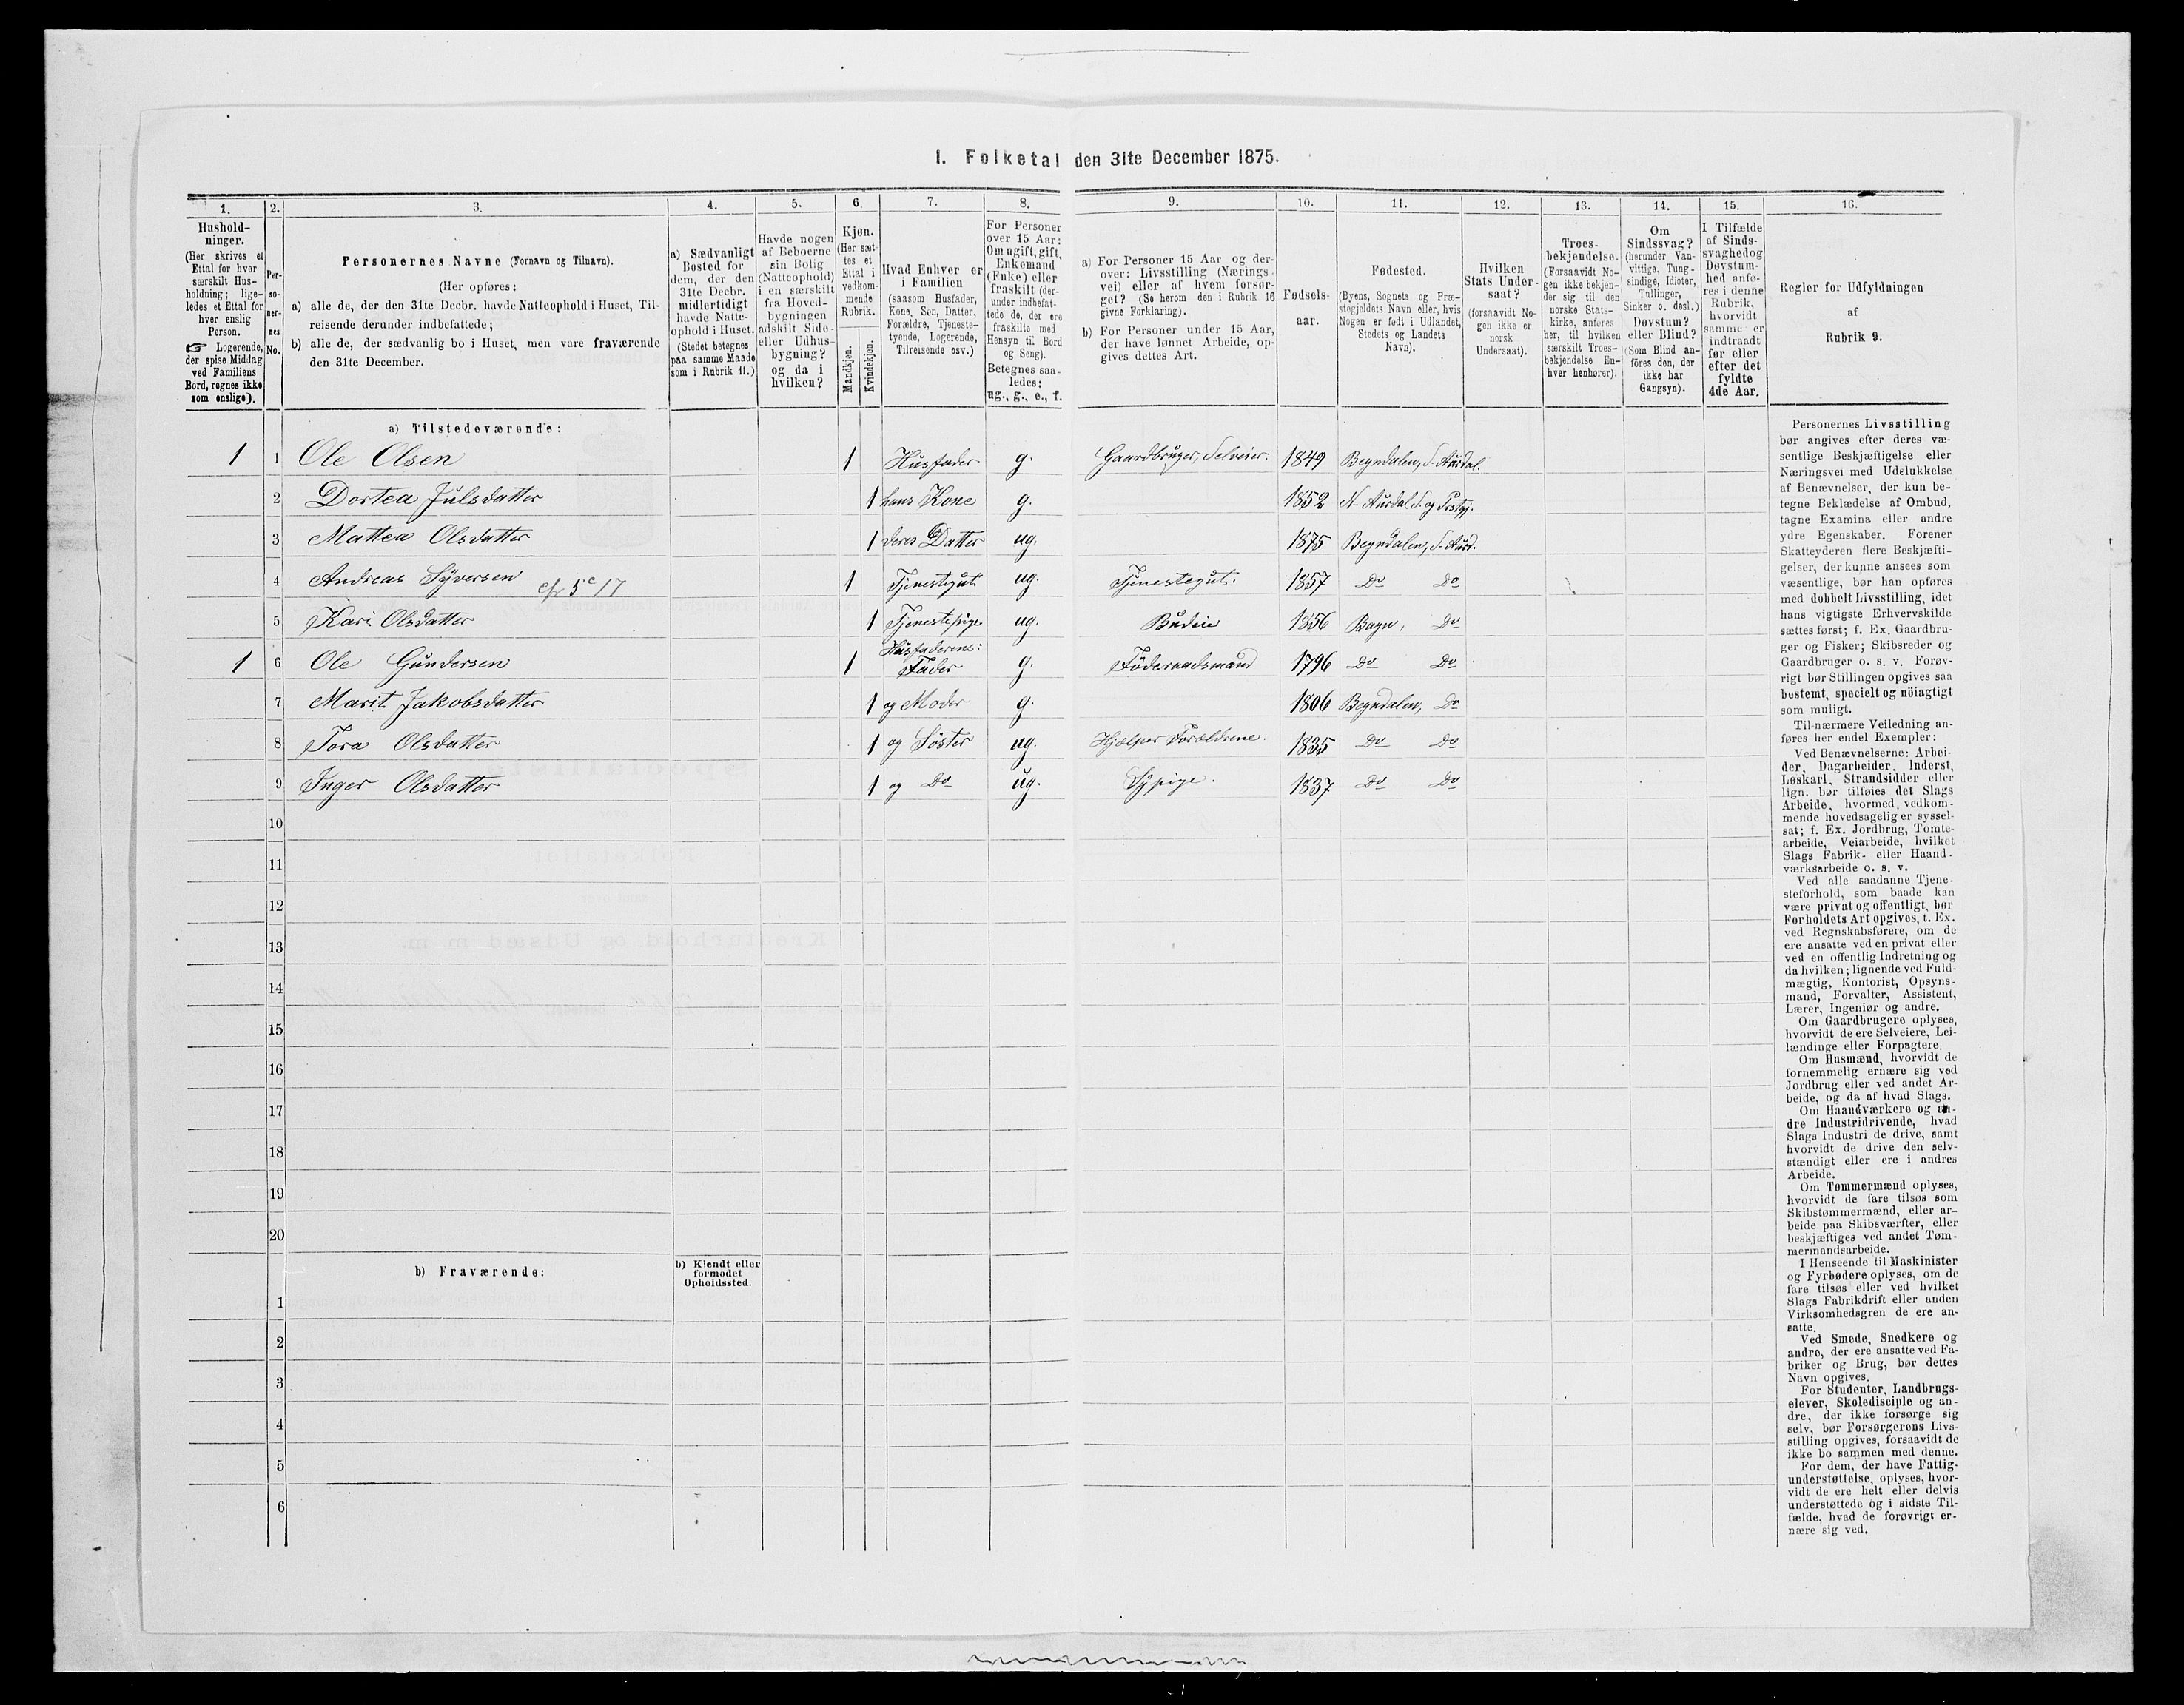 I. Folketal den 31te December 1875.
1.
Hushold-
ninger.
(Her skrives et
Ettal for hver
særskilt Hus-
holdning; lige-
ledes et Ettal for
hver enslig
Person.
☞ Logerende,
der spise Middag
ved Familiens
Bord, regnes ikke
som enslige).
2.
Per-
so-
ner-
nes
No.
3.
Personernes Navne (Fornavn og Tilnavn).
(Her opføres:
a) alle de, der den 31te Decbr. havde Natteophold i Huset, Til-
reisende derunder indbefattede;
b) alle de, der sædvanlig bo i Huset, men vare fraværende
den 31te December.
4.
a) Sædvanligt
Bosted for
dem, der den
31te Decbr.
midlertidigt
havde Natte-
ophold i Huset.
(Stedet betegnes
paa samme Maade
som i Rubrik 11.)
5.
Havde nogen
af Beboerne
sin Bolig
(Natteophold)
i en særskilt
fra Hoved-
bygningen
adskilt Side-
eller Udhus-
bygning?
og da i
hvilken?
6.
Kjøn.
(Her sæt-
tes et
Ettal i
vedkom-
mende
Rubrik.
Mandkjøn.
Kvindekjøn.
7.
Hvad Enhver er
i Familien
(saasom Husfader,
Kone, Søn, Datter,
Forældre, Tjeneste-
tyende, Logerende,
Tilreisende osv.)
8.
For Personer
over 15 Aar:
Om ugift, gift,
Enkemand
(Enke) eller
fraskilt (der-
under indbefat-
tede de, der ere
fraskilte med
Hensyn til Bord
og Seng).
Betegnes saa-
ledes:
ug., g., e., f.
9.
a) For Personer 15 Aar og der-
over: Livsstilling (Nærings-
vei) eller af hvem forsør-
get? (Se herom den i Rubrik 16
givne Forklaring).
b) For Personer under 15 Aar,
der have lønnet Arbeide, op-
gives dettes Art.
10.
Fødsels-
aar.
11.
Fødested.
(Byens, Sognets og Præ-
stegjeldets Navn eller, hvis
Nogen er født i Udlandet,
Stedets og Landets
Navn).
12.
Hvilken
Stats Under-
saat?
(forsaavidt No-
gen ikke er
norsk
Undersaat).
13.
Troes-
bekjendelse.
(Forsaavidt No-
gen ikke bekjen-
der sig til den
norske Stats-
kirke, anføres
her, til hvilken
særskilt Troes-
bekjendelse En-
hver henhører).
14.
Om
Sindssvag?
(herunder Van-
vittige, Tung-
sindige, Idioter,
Tullinger,
Sinker o. desl.)
Døvstum?
eller Blind?
(Som Blind an-
føres den, der
ikke har
Gangsyn).
15.
I Tilfælde
af Sinds-
svaghed og
Døvstum-
hed anfø-
res i denne
Rubrik,
hvorvidt
samme er
indtraadt
før eller
efter det
fyldte
4de Aar.
16.
Regler for Udfyldningen
af
Rubrik 9.
a) Tilstedeværende:
1 1 Ole Olsen 1 Husfader g. Gaardbruger, Selveier. 1849 Begndalen, S. Aurdal.
2 Dortea Julsdatter 1 hans Kone g. 1852 N. Aurdal S. og Prstgj.
3 Mattea Olsdatter 1 deres Datter ug. 1875 Begndalen, S. Aurd.
4 Andreas Syversen cfr 5c 17 1 Tjenestegut ug. Tjenestegut. 1857 Do Do
5 Kari Olsdatter 1 Tjenestepige ug. Budeie 1856 Bagn, Do
1 6 Ole Gundersen 1 Husfaderens: Fader g. Föderaadsmand 1796 Do Do
7 Marit Jakobsdatter 1 og Moder g. 1806 Begndalen, Do
8 Tora Olsdatter 1 og Söster ug. Hjælper Forældrene. 1835 Do Do
9 Inger Olsdatter 1 og Do ug. Sypige. 1837 Do Do
10
11
12
13
14
15
16
17
18
19
20
b) Fraværende:
b) Kjendt eller
formodet
Opholdssted.
1
2
3
4
5
6
Personernes Livsstilling
bør angives efter deres væ-
sentlige Beskjæftigelse eller
Næringsvei med Udelukkelse
af Benævnelser, der kun be-
tegne Beklædelse af Ombud,
tagne Examina eller andre
ydre Egenskaber. Forener
Skatteyderen flere Beskjæfti-
gelser, der kunne ansees som
væsentlige, bør han opføres
med dobbelt Livsstilling, idet
hans vigtigste Erhvervskilde
sættes først; f. Ex. Gaardbru-
ger og Fisker; Skibsreder og
Gaardbruger o. s. v. Forøv-
rigt bør Stillingen opgives saa
bestemt, specielt og nöiagtigt
som muligt.
Til nærmere Veiledning an-
føres her endel Exempler:
Ved Benævnelserne: Arbei-
der, Dagarbeider, Inderst,
Løskarl, Strandsidder eller
lign. bør tilføies det Slags
Arbeide, hvormed vedkom-
mende hovedsagelig er syssel-
sat; f. Ex. Jordbrug, Tomte-
arbeide, Veiarbeide, hvilket
Slags Fabrik- eller Haand-
værksarbeide o. s. v.
Ved alle saadanne Tjene-
steforhold, som baade kan
være privat og offentligt, bør
Forholdets Art opgives, t. Ex.
ved Regnskabsførere, om de
ere ansatte ved en privat eller
ved en offentlig Indretning og
da hvilken; lignende ved Fuld-
mægtig, Kontorist, Opsyns-
mand, Forvalter, Assistent,
Lærer, Ingeniør og andre.
Om Gaardbrugere oplyses,
hvorvidt de ere Selveiere, Lei-
lændinge eller Forpagtere.
Om Husmænd, hvorvidt de
fornemmelig ernære sig ved
Jordbrug eller ved andet Ar-
beide, og da af hvad Slags.
Om Haandværkere og an-
dre Industridrivende, hvad
Slags Industri de drive, samt
hvorvidt de drive den selv-
stændigt eller ere i andres
Arbeide.
Om Tømmermænd oplyses,
hvorvidt de fare tilsøs som
Skibstømmermænd, eller ar-
beide paa Skibsværfter, eller
beskjæftiges ved andet Tøm-
mermandsarbeide.
I Henseende til Maskinister
og Fyrbødere oplyses, om de
fare tilsøs eller ved hvilket
Slags Fabrikdrift eller anden
Virksomhedsgren de ere an-
satte.
Ved Smede, Snedkere og
andre, der ere ansatte ved Fa-
briker og Brug, bør dettes
Navn opgives.
For Studenter, Landbrugs-
elever, Skoledisciple og an-
dre, der ikke forsørge sig
selv, bør Forsørgerens Livs-
stilling opgives, forsaavidt de
ikke bo sammen med denne.
For dem, der have Fattig-
understøttelse, oplyses, hvor-
vidt de ere helt eller delvis
understøttede og i sidste Til-
fælde, hvad de forøvrigt er-
nære sig ved.